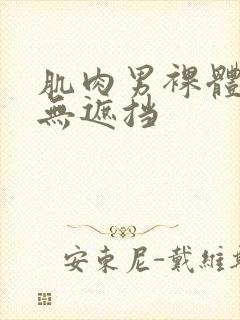 肌肉男裸體
無遮挡
安東尼-戴維斯